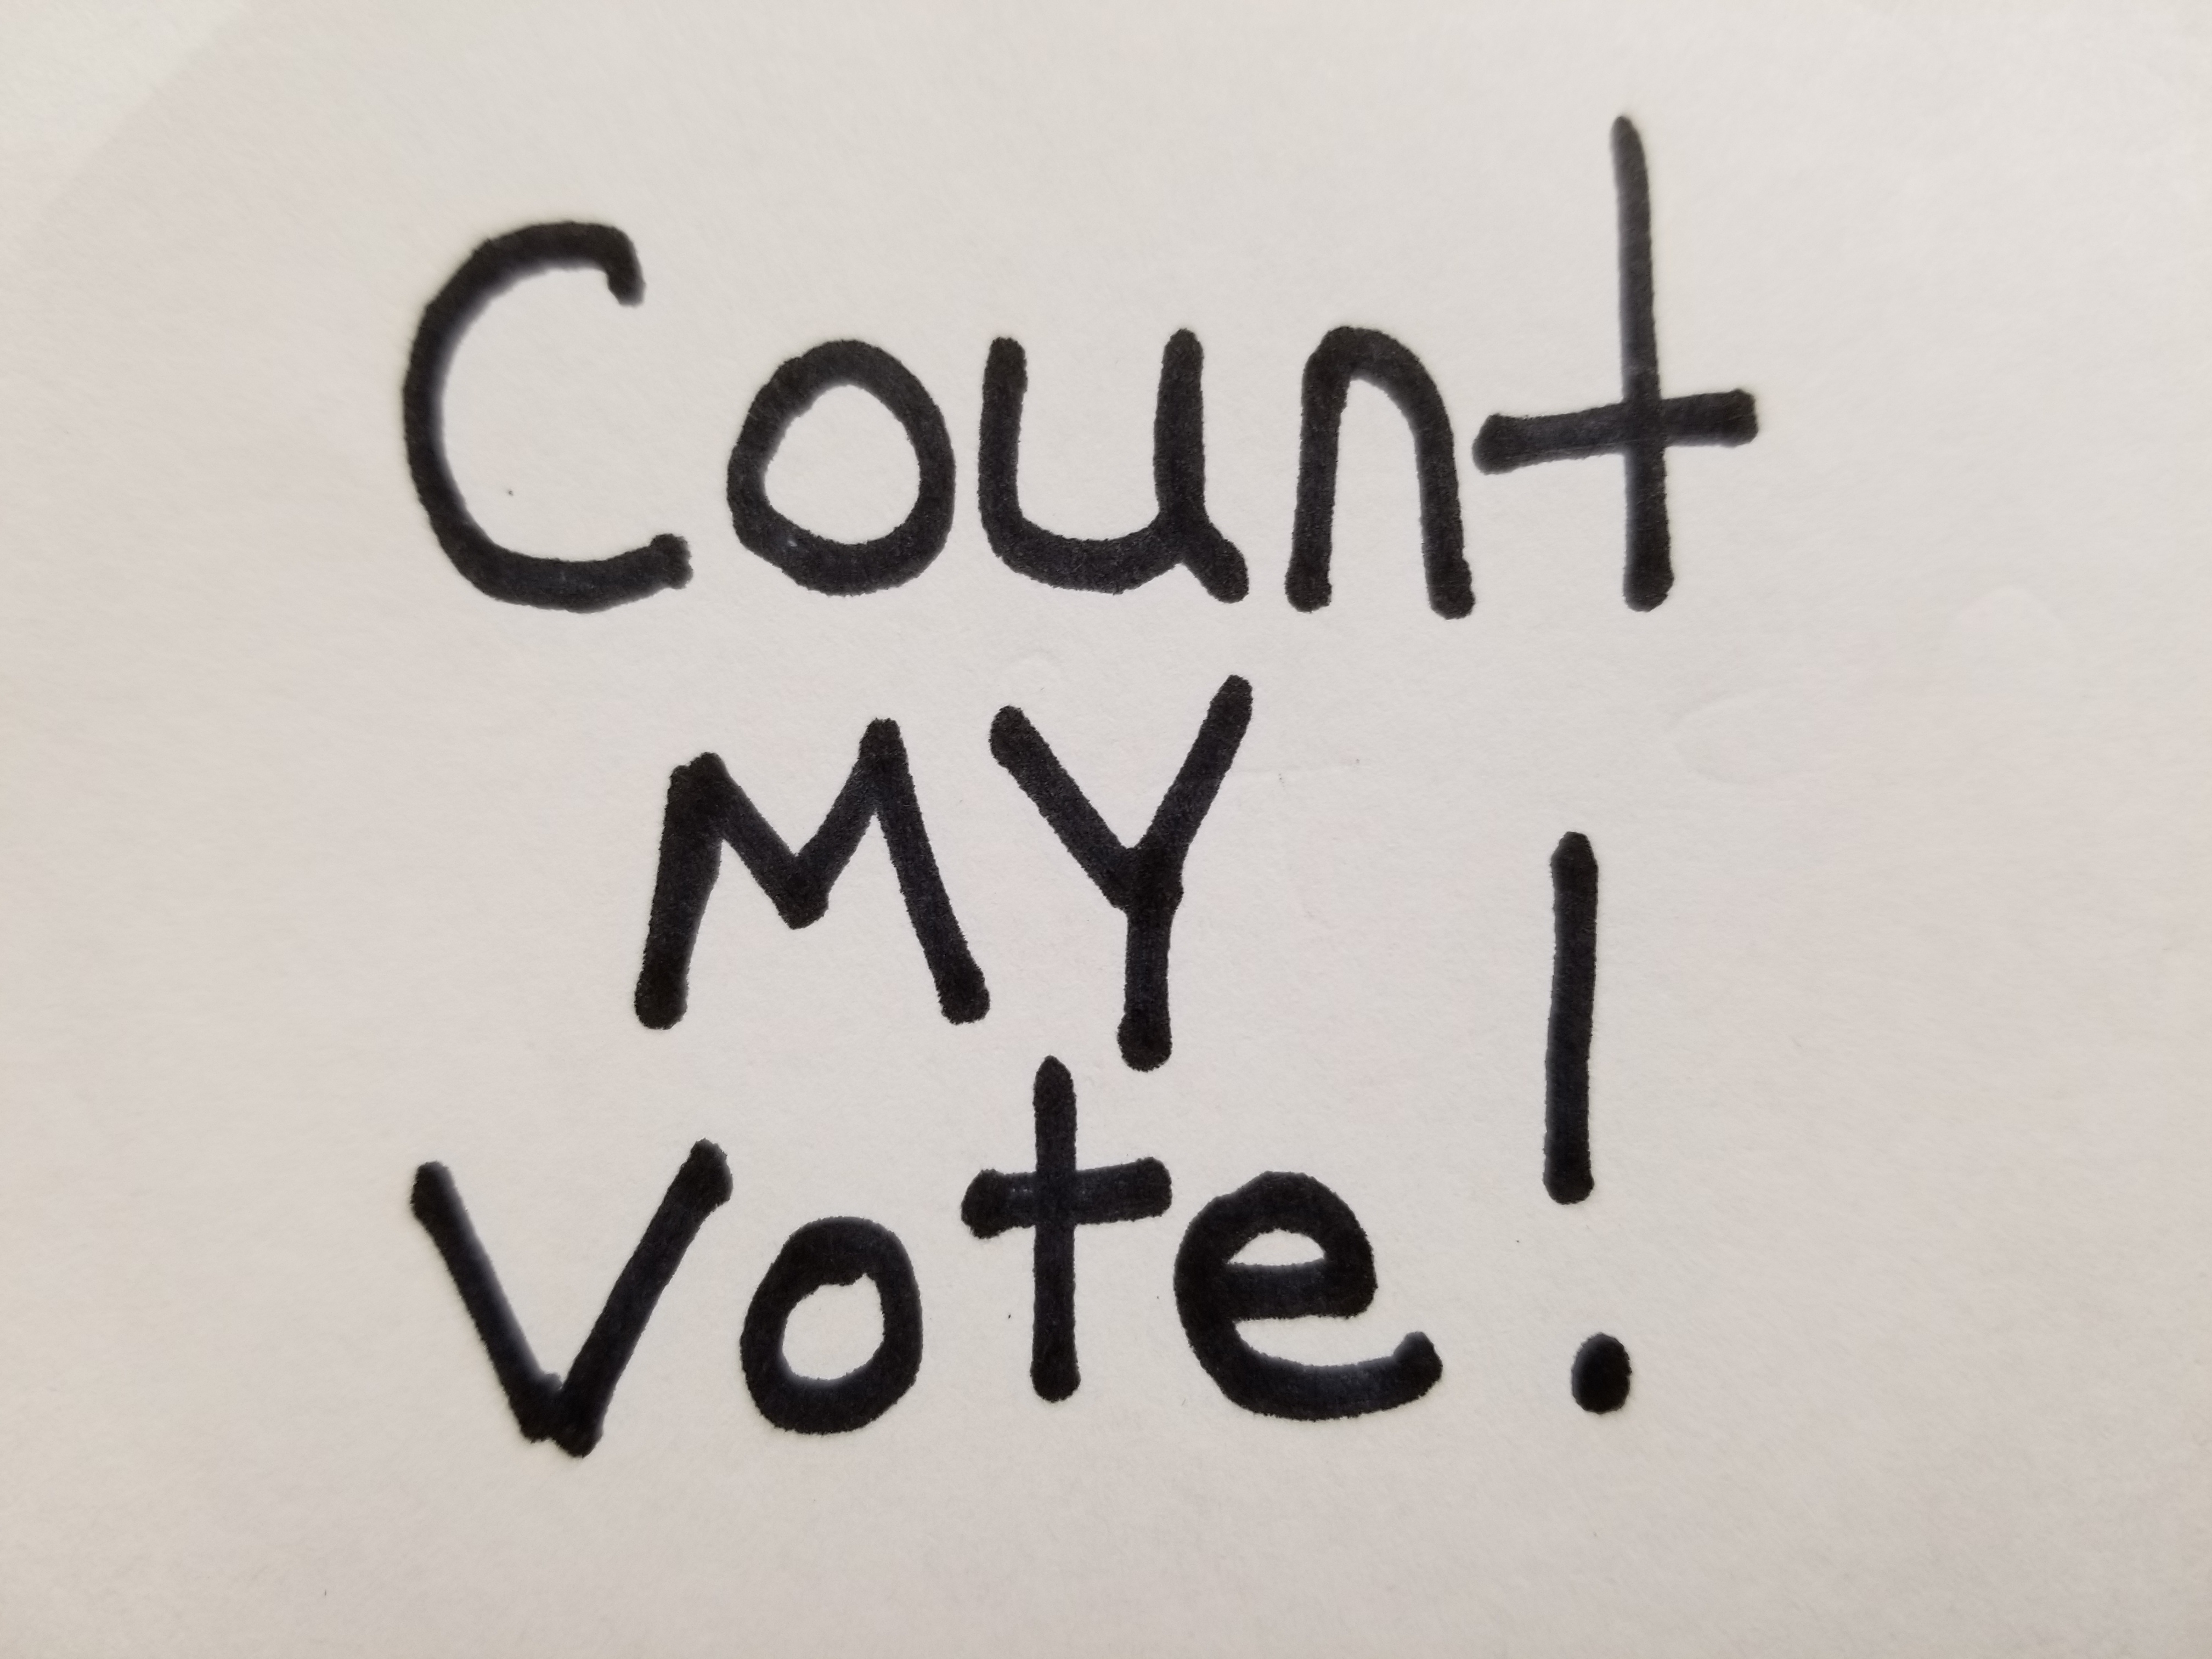 Count
MY
Vote!